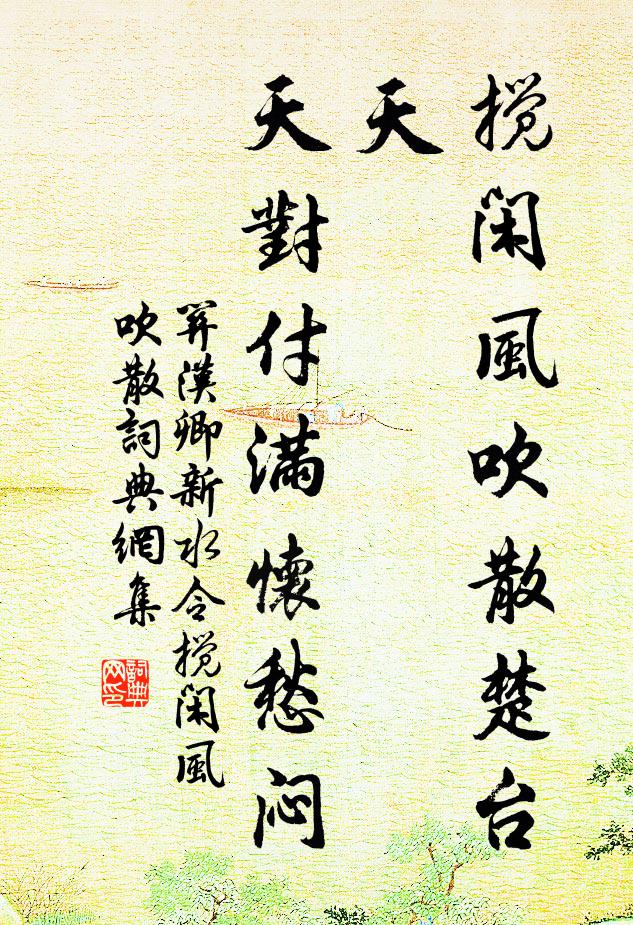 搅闲風吹散楚台
天
天對付满懷愁闷
関漢卿新水令搅闲風
吹散詞典網集
詞典
网印